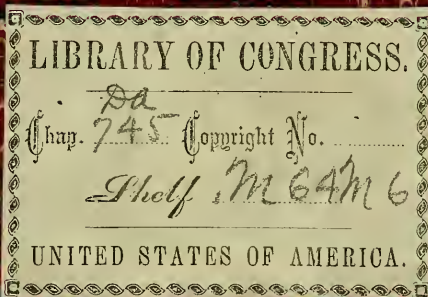 LIBRARY OF CONGRESS.
DA
Chap. 745 Copyright No.
Shelf .M64M6
UNITED STATES OF AMERICA.